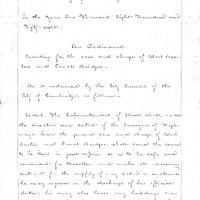 In the Year One Thousand Eight Hundred and
Fifty-eight.
An Ordinance
Providing for the care and charge of West Boston
and Canal Bridges.
Be it ordained by the City Council of the
City of Cambridge as follows:
Sect. 1. The Superintendent of Streets shall under
the direction and control of the Surveyors of High-
ways have the general care and charge of West
Boston and Canal Bridges, shall cause the same
to be kept in good repair so as to be safe and
convenient for travellers and make the necessary
for the supply of any labor or materials
he may require in the discharge of his official
duties. he may also have